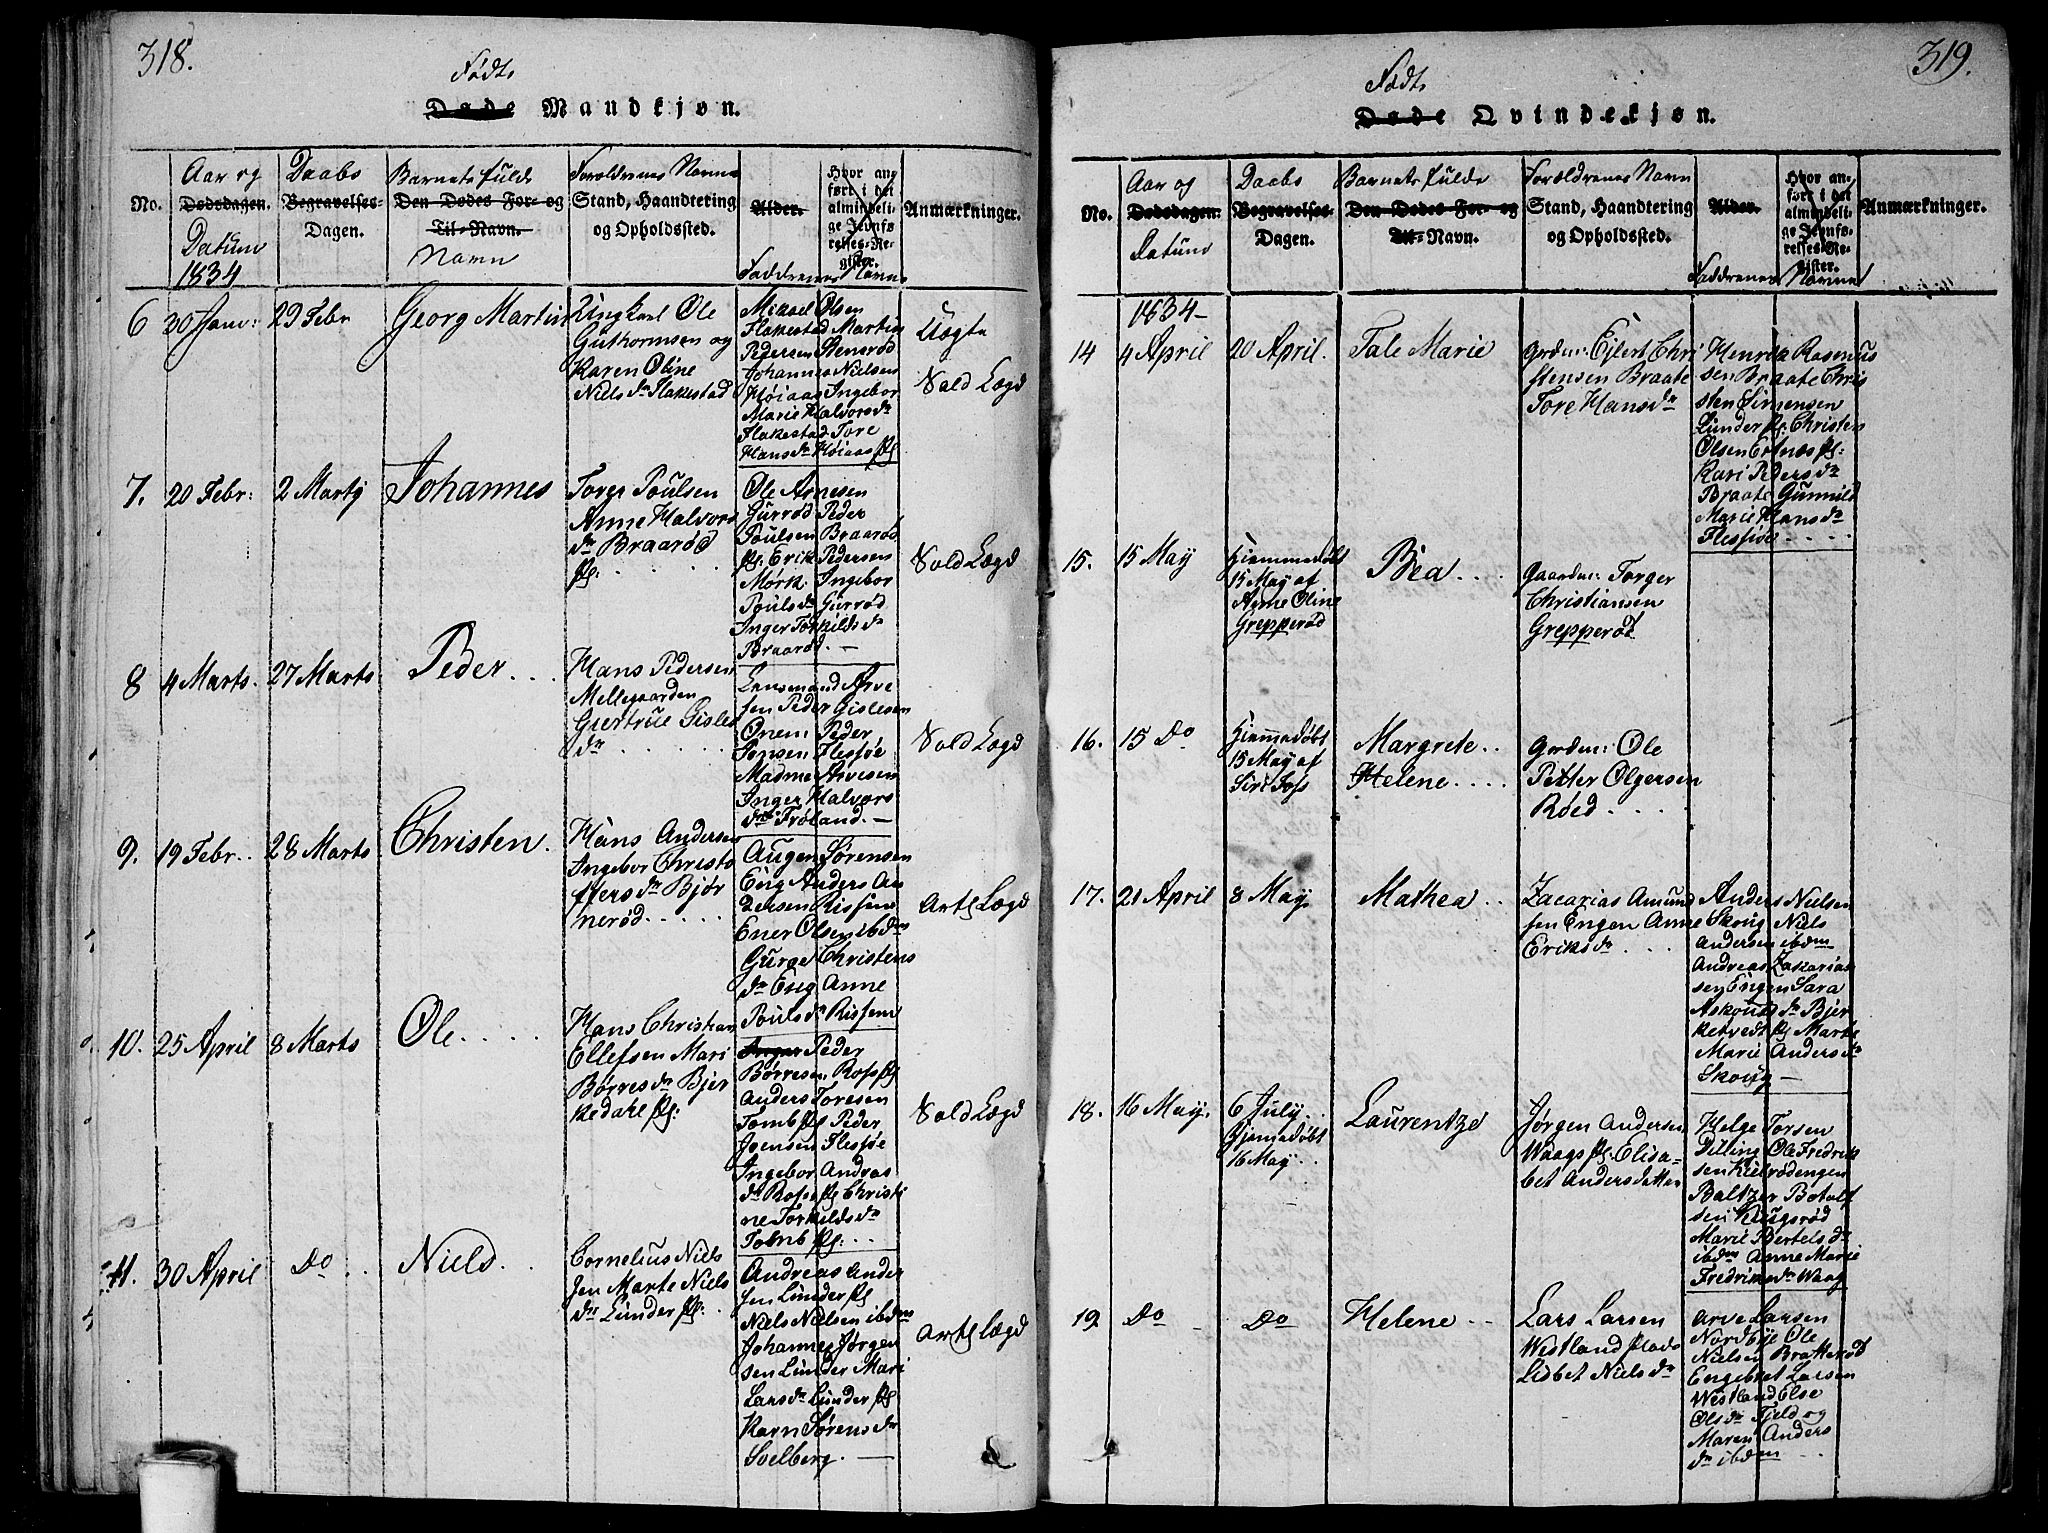 318.
Født
Døde Mandkjøn.
No.
Aar og
Dødsdagen.
Datum
1834
Daabs
Begravelses-
Dagen.
Barnets fulde
Den Dødes For- og
Til-Navn.
Navn
Foreldrenes Navne
Stand, Haandtering
og Opholdssted.
Alder.
Hvor an-
ført i det
almindeli-
ge Jevnfø-
relses-Re-
gister.
Faddrenes Navne
Anmærkninger.
6
30 Jan:
29 Febr
Georg Martin
Ungkarl Ole
Guthormsen og
Karen Oline
Niels dr Flakestad
Mikael Olsen
Flakestad Martin
Pedersen Stensrød
Johannes Nielsen
Høiaas Ingebor
Marie Halvorsdr
Flakestad Tore
Hansdr Høiaas pl
Uægte
Vold Lægd
7.
20 Febr:
2 Marty
Johannes
Torger Poulsen
Anne Halvors
dr Braarød
pl:
Ole Arnesen
Gurrød Peder
Poulsen Braarød
pl: Erik Pedersen
Mørk Ingebor
Poulsdr Gurrød
Inger Torkildsdr
Braarød. —
Vold Lægd
8
4 Marts.
27 Marts
Peder
Hans Pedersen
Mellegaarden
Giertrue Gisles
dr
Lensmand Arve
sen Peder Gislesen
Onem Peder
Jensen Flesjøe
Madme Arvesen
Inger Halvors
dr Frøland. —
Vold Lægd
9.
19 Febr.
28 Marts
Christen.
Hans Andersen
Ingebor Christo
ffersdr Bjør
nerød
Augen Sørensen
Eng Anders An
dersen Rissem
Ener Olsen ibdm
Guroe Christens
dr Eng Anne
Poulsdr Rissem
Artl Lægd
10.
25 April
8 Marts
Ole
Hans Christian
Ellefsen Mari
Børresdr Bjer
kedahl pl:
Inger Peder
Børresen Ross pl
Anders Toresen
Tomb pl Peder
Joensen Flesjøe
Ingebor Andras
dr Ross pl Christi
ne Torkildsdr
Tomb pl:
Vold Lægd
11.
30 April
Do
Niels
Cornelius Niels
sen Marte Niels
dr Lunder pl:
Andreas Ander
sen Lunder pl
Niels Nielsen ibdm
Johannes Jørgen
sen Lunder Mari
Larsdr Lunder pl
Karn Sørensdr
Soelberg.
Artl Lægd
319.
Født
Døde Qvindekjøn.
No.
Aar og
Dødsdagen.
Datum
Daabs
Begravelses-
Dagen.
Barnets fulde
Den Dødes For- og
Til-Navn.
Foreldrenes Navn
Stand, Haandtering
og Opholdssted.
Alder.
Hvor an-
ført i det
almindeli-
ge Jevnfø-
relses-Re-
gister.
Faddrenes Navne
Anmærkninger.
1834-
14
4 April
20 April.
Tale Marie
Grdm: Ejlert Chri
stensen Braate
Tore Hansdr
Henrik Rasmus
sen Braate Chris
sten Simensen
Lunder pl: Christen
Olsen Ertnæs pl:
Kari Pedersdr
Braate Gunnild
Marie Hansdr
Flesjøe
15.
15 May
Hjemmedøbt
15 May af
Anne Oline
Grepperød
Bea
Gaardm: Torger
Christiansen
Grepperød
16.
15 Do
Hjemmedøbt
15 May af
Siri Foss
Margrete
Helene
Grdm: Ole
Petter Olgersen
Røed
17.
21 April
8 May
Mathea
Zacarias Amund
sen Engen Anne
Eriksdr
Anders Nielsen
Skoug Niels
Andersen ibdm
Andreas Zakarias
sen Engen Sara
Askouts dr Bjer
ketvedt pl Marte
Marie Andersdr
Skoug —
18.
16 May.
6 July
Hjemedøbt
16 May
Laurentze
Jørgen Andersen
Waags pl: Elisa-
bet Andersdatter
Helge Torsen
Dilling Ole Fredrik
sen Kielrødengen
Baltzer Botolf
sen Krugsrød
Marie Bertelsdr
ibdm Anne Marie
Fredriksdr Waag
19
Do
Do
Helene
Lars Larsen
Westland plads
Lisbet Nielsdr
Arve Larsen
Nordbye Ole
Nielsen Bratterød
Engebret Larsen
Westland Else
Olsdr Fjeld og
Maren Anders
dr ibdm